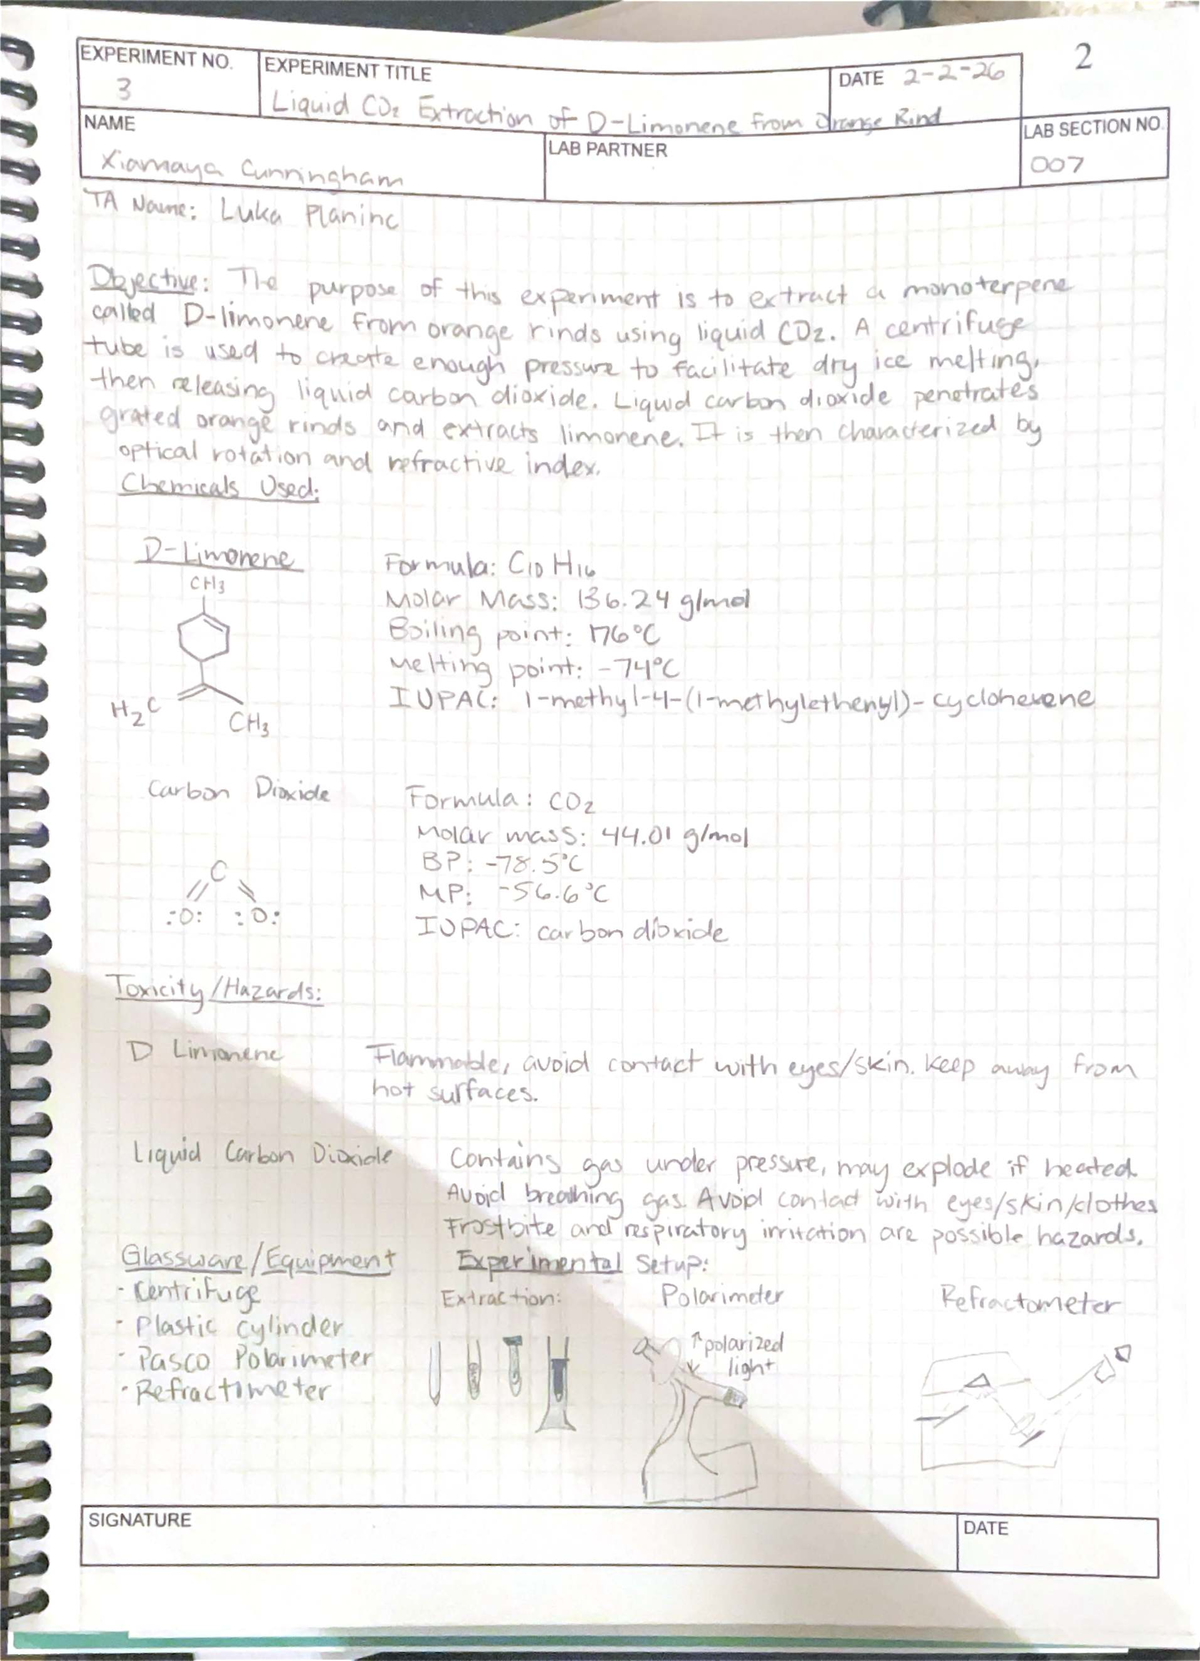 2
EXPERIMENT NO.
3
EXPERIMENT TITLE
Liquid CO₂ Extraction of D-Limonene from Orange Rind
DATE 2-2-26
NAME
Xiamaya Cunningham
LAB PARTNER
LAB SECTION NO.
007
TA Name: Luka Planinc
Objective: The purpose of this experiment is to extract a monoterpene
called D-limonene from orange rinds using liquid CO2. A centrifuge
tube is used to create enough pressure to facilitate dry ice melting,
then releasing liquid carbon dioxide. Liquid carbon dioxide penetrates
grated orange rinds and extracts limonene. It is then characterized by
optical rotation and refractive index.
Chemicals Used:
D-Limonene
CH3
H2C
CH3
Formula: C10 H16
Molar Mass: 136.24 g/mol
Boiling point: 176°C
Melting point: -74°C
IUPAC: 1-methyl-4-(1-methylethenyl)-cyclohexene
Carbon Dioxide
C
:O: :O:
Formula: CO2
Molar mass: 44.01 g/mol
BP: -78.5°C
MP: -56.6°C
IUPAC: carbon dioxide
Toxicity/Hazards:
D Limonene
Flammable, avoid contact with eyes/skin. Keep away from
hot surfaces.
Liquid Carbon Dioxide
Contains gas under pressure, may explode if heated.
Avoid breathing gas. Avoid contact with eyes/skin/clothes
Frostbite and respiratory irritation are possible hazards.
Glassware/Equipment
- Centrifuge
- Plastic cylinder
- Pasco Polarimeter
- Refractometer
Experimental Setup:
Extraction:
Polarimeter
↑polarized
light
Refractometer
SIGNATURE
DATE